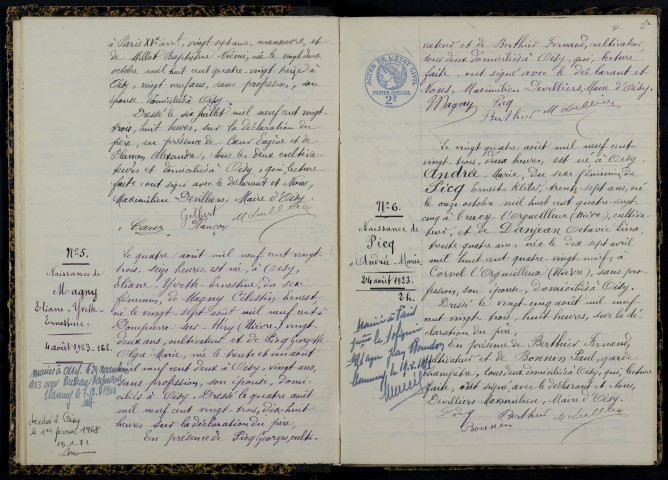 à Paris XVe arrt, vingt sept ans, manœuvre, et
de Millot Baptistine Noémie, née le vingt deux
octobre mil huit cent quatre-vingt treize à
Oisy, vingt neuf ans, sans profession, son
épouse domiciliés à Oisy.
Dressé le dix juillet mil neuf cent vingt-
trois, huit heures, sur la déclaration du
père, en présence de Cœur Eugène et de
Plançon Alexandre, tous les deux cultiva-
teurs et domiciliés à Oisy, qui, lecture
faite ont signé avec le déclarant et Nous,
Maximilien Devilliers, Maire d'Oisy.
Cœur Plançon
No 5.
Naissance de
Magny
Eliane-Yvette-
Ernestine.
4 août 1923. 16h.
Le quatre août mil neuf cent vingt
trois, seize heures est née, à Oisy,
Eliane-Yvette-Ernestine, du sexe
féminin, de Magny Célestin Ernest,
né le vingt sept août mil neuf cent à
Dompierre-sur-Héry (Nièvre) vingt
deux ans, cultivateur et de Picq Georgette
Olga-Marie, née le trente et un août
mil neuf cent deux à Oisy, vingt ans,
sans profession, son épouse, domi-
ciliés à Oisy. Dressé le quatre août
mil neuf cent vingt-trois, dix-huit
heures sur la déclaration du père,
En présence de Picq Georges, culti-
Mariée à Oisy le 24 novembre
Décédée à Oisy
le 1er février 1968
vateur et de Berthier Fernand, cultivateur,
tous deux domiciliés à Oisy, qui, lecture
faite, ont signé avec le déclarant et
Nous, Maximilien Devilliers, Maire d'Oisy.
Magny Picq
Berthier
ACTES DE L'ÉTAT CIVIL
PAPIER SPÉCIAL
2F
No 6.
Naissance de
Picq
Andrée-Marie
24 août 1923.
2h.
Le vingt quatre août mil neuf cent
vingt trois, deux heures, est née à Oisy
Andrée-Marie, du sexe féminin, de
Picq Ernest, trente-sept ans, né
le onze octobre mil huit cent quatre-vingt
cinq à Corvol l'Orgueilleux (Nièvre), cultiva-
teur, et de Danjean Octavie,
trente-quatre ans, née le dix sept avril
mil huit cent quatre-vingt neuf, à
Corvol l'Orgueilleux (Nièvre), sans pro-
fession, son épouse, domiciliés à Oisy.
Dressé le vingt cinq août mil neuf
cent vingt trois, huit heures, sur la dé-
claration du père.
En présence de Berthier Fernand,
cultivateur et de Bonnin Paul, garde-
champêtre, tous deux domiciliés à Oisy, qui, lecture
faite, ont signé avec le déclarant et Nous,
Devilliers Maximilien, Maire d'Oisy.
Picq Berthier
Bonnin
Mariée à Paris